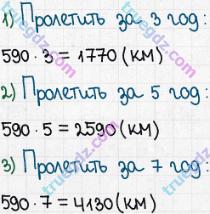 1) Пролетить за 3 год:
590 · 3 = 1770 (км)
2) Пролетить за 5 год:
590 · 5 = 2590 (км)
3) Пролетить за 7 год:
590 · 7 = 4130 (км)